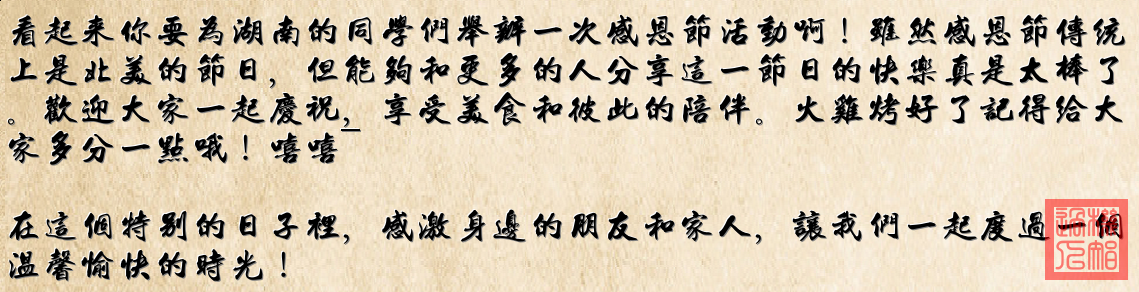 看起来你要為湖南的同學們舉辦一次感恩節活動啊！雖然感恩節傳統
上是北美的節日，但能夠和更多的人分享這一節日的快樂真是太棒了
。歡迎大家一起慶祝，享受美食和彼此的陪伴。火雞烤好了記得給大
家多分一點哦！嘻嘻
在這個特别的日子裡，感激身邊的朋友和家人，讓我們一起度過一個
溫馨愉快的時光！